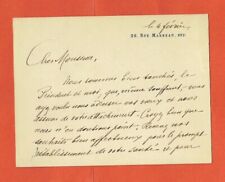 le 4 février
Cher Monsieur,
Nous sommes bien touchés, le
Président et moi, que, même souffrant, vous
ayez voulu nous adresser vos vœux et nous
de votre attachement. Croyez bien que
nous n'en doutions point. Recevez nos
souhaits bien affectueux pour le prompt
rétablissement de votre santé et pour